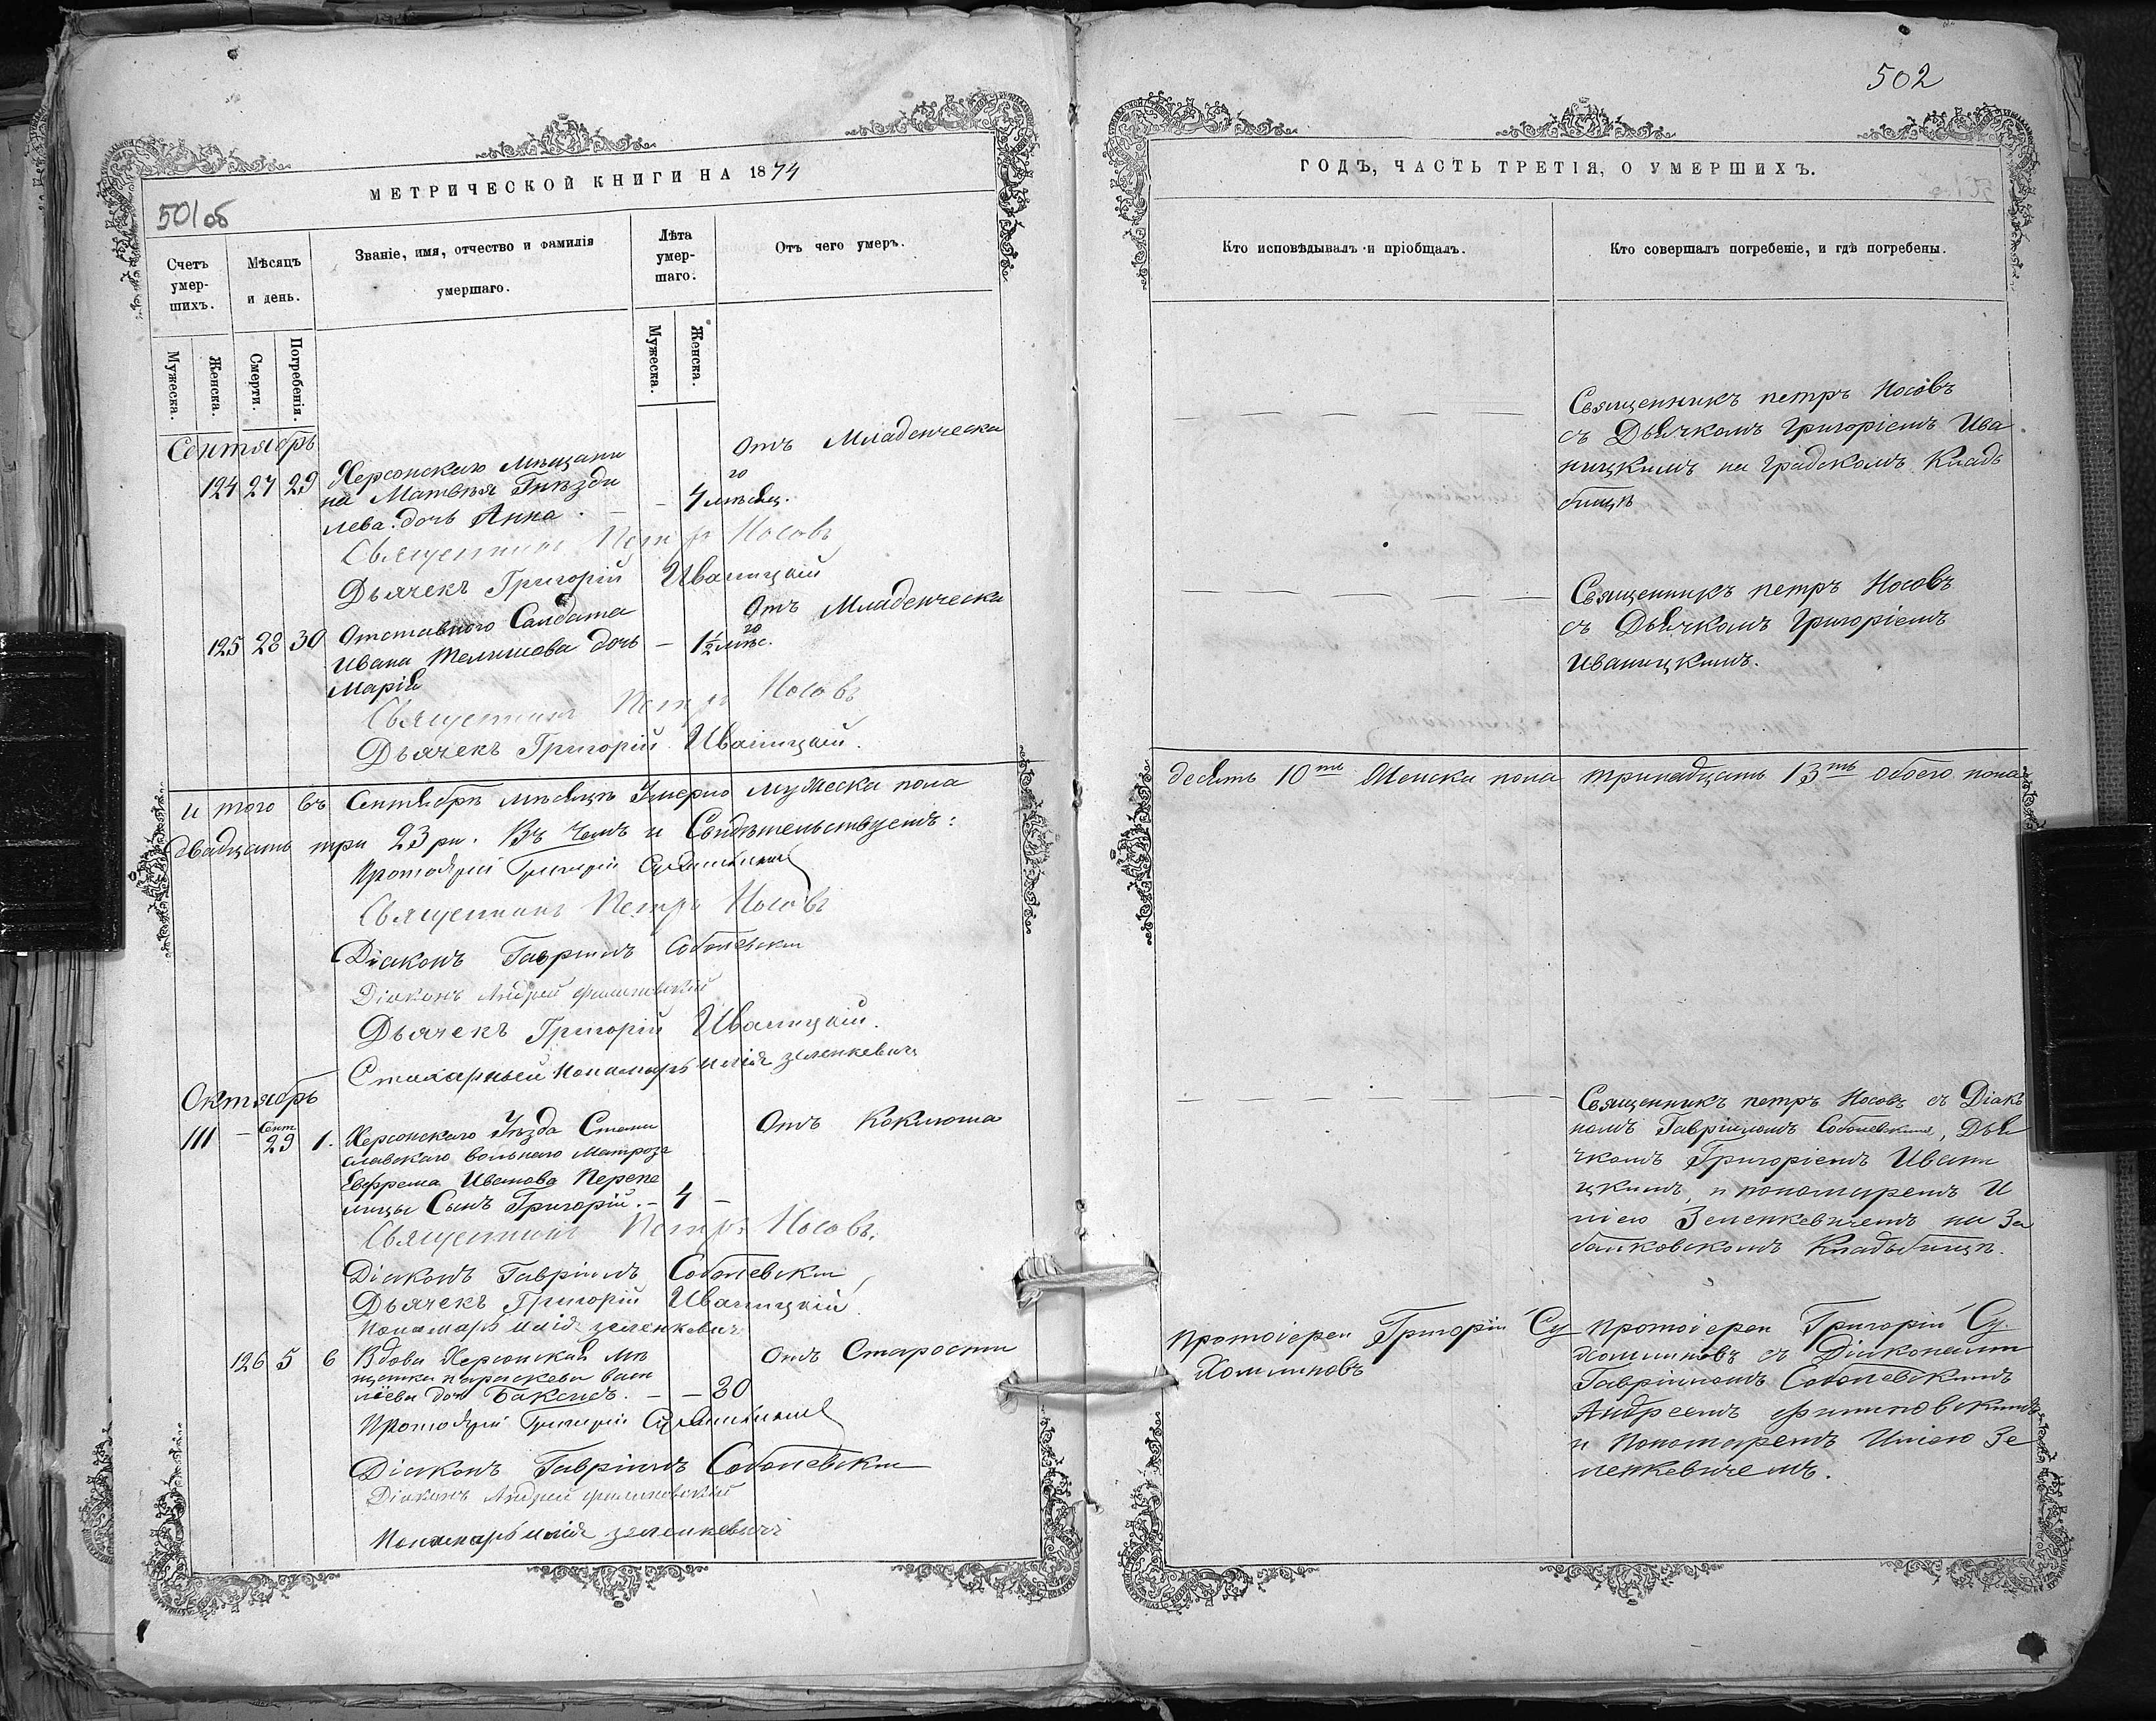 МЕТРИЧЕСКОЙ КНИГИ НА 1874
501об
Счетъ умер-шихъ.
Мужеска.
Женска.
Мѣсяцъ и день.
Смерти.
Погребенія.
Званіе, имя, отчество и фамилія умершаго.
Лѣта умер-шаго.
Мужеска.
Женска.
Отъ чего умеръ.
Сентябрь
124 27 29 Херсонскаго мѣщани
на Матвѣя Гнѣзди
лева дочь Анна. — — 4 мѣсяц. Отъ Младенческа
го
Священникъ Петръ Носовъ
Дьячекъ Григорій Иваницкій
125 28 30 Отставного Салдата
Ивана дочь — 1½ мѣс. Отъ Младенческа
го
Марія
Священникъ Петръ Носовъ
Дьячекъ Григорій Иваницкій.
и того въ Сентябрѣ мѣсяцѣ Умерло мужеска пола
двадцать три 23 ри. Въ чемъ и Свидѣтельствуемъ:
Протоіерей Григорій
Священникъ Петръ Носовъ
Діаконъ Гавріилъ Соболевскій
Діаконъ Андрей Филиповскій
Дьячекъ Григорій Иваницкій.
Пономарь Илія Зеленкевичъ
Октябрь
111 — Сент 29 1. Херсонскаго Уѣзда Стани
славскаго вольнаго Матроза
Ефрема Иванова Перепе
лицы Сынъ Григорій. — 4 — Отъ Коклюша
Священникъ Петръ Носовъ.
Діаконъ Гавріилъ Соболевскій
Дьячекъ Григорій Иваницкій.
Пономарь Илія Зеленкевичъ
126 5 6 Вдова Херсонская мѣ
щанка Параскева Васи
ліева — — 80 Отъ Старости
Протоіерей Григорій
Діаконъ Гавріилъ Соболевскій
Діаконъ Андрей Филиповскій
Пономарь Илія Зеленкевичъ
502
ГОДЪ, ЧАСТЬ ТРЕТІЯ, О УМЕРШИХЪ.
Кто исповѣдывалъ и пріобщалъ.
Кто совершалъ погребеніе, и гдѣ погребены.
Священникъ петръ Носовъ
съ Дьячкомъ Григоріемъ Ива
ницкимъ на Градскомъ Кладь
бищѣ
Священникъ петръ Носовъ
съ Дьячкомъ Григоріемъ
Иваницкимъ.
десять 10ть Женска пола тринадцать 13ть обоего пола
Священникъ петръ Носовъ съ Діако
номъ Гавріиломъ Соболевскимъ, Дья
чкомъ Григоріемъ Ивани
цкимъ, и пономаремъ И
ліею Зеленкевичемъ на За
балковскомъ Кладьбищѣ.
Протоіереи Григорій Су
Холиновъ
Протоіереи Григорій Су.
съ Діаконами
Гавріиломъ Соболевскимъ
Андреемъ Филиповскимъ
и Пономаремъ Иліею Зе
ленкевичемъ.